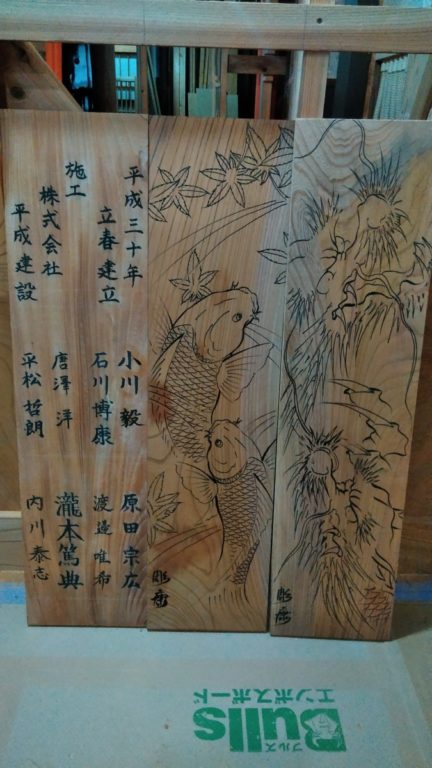 平成三十年
立春建立
施工
株式会社
平成建設
小川 毅
石川博康
唐澤 洋
平松哲朗
原田宗広
渡邊唯希
瀧本篤典
内川泰志
ブルズ
Bulls
エンボスボード